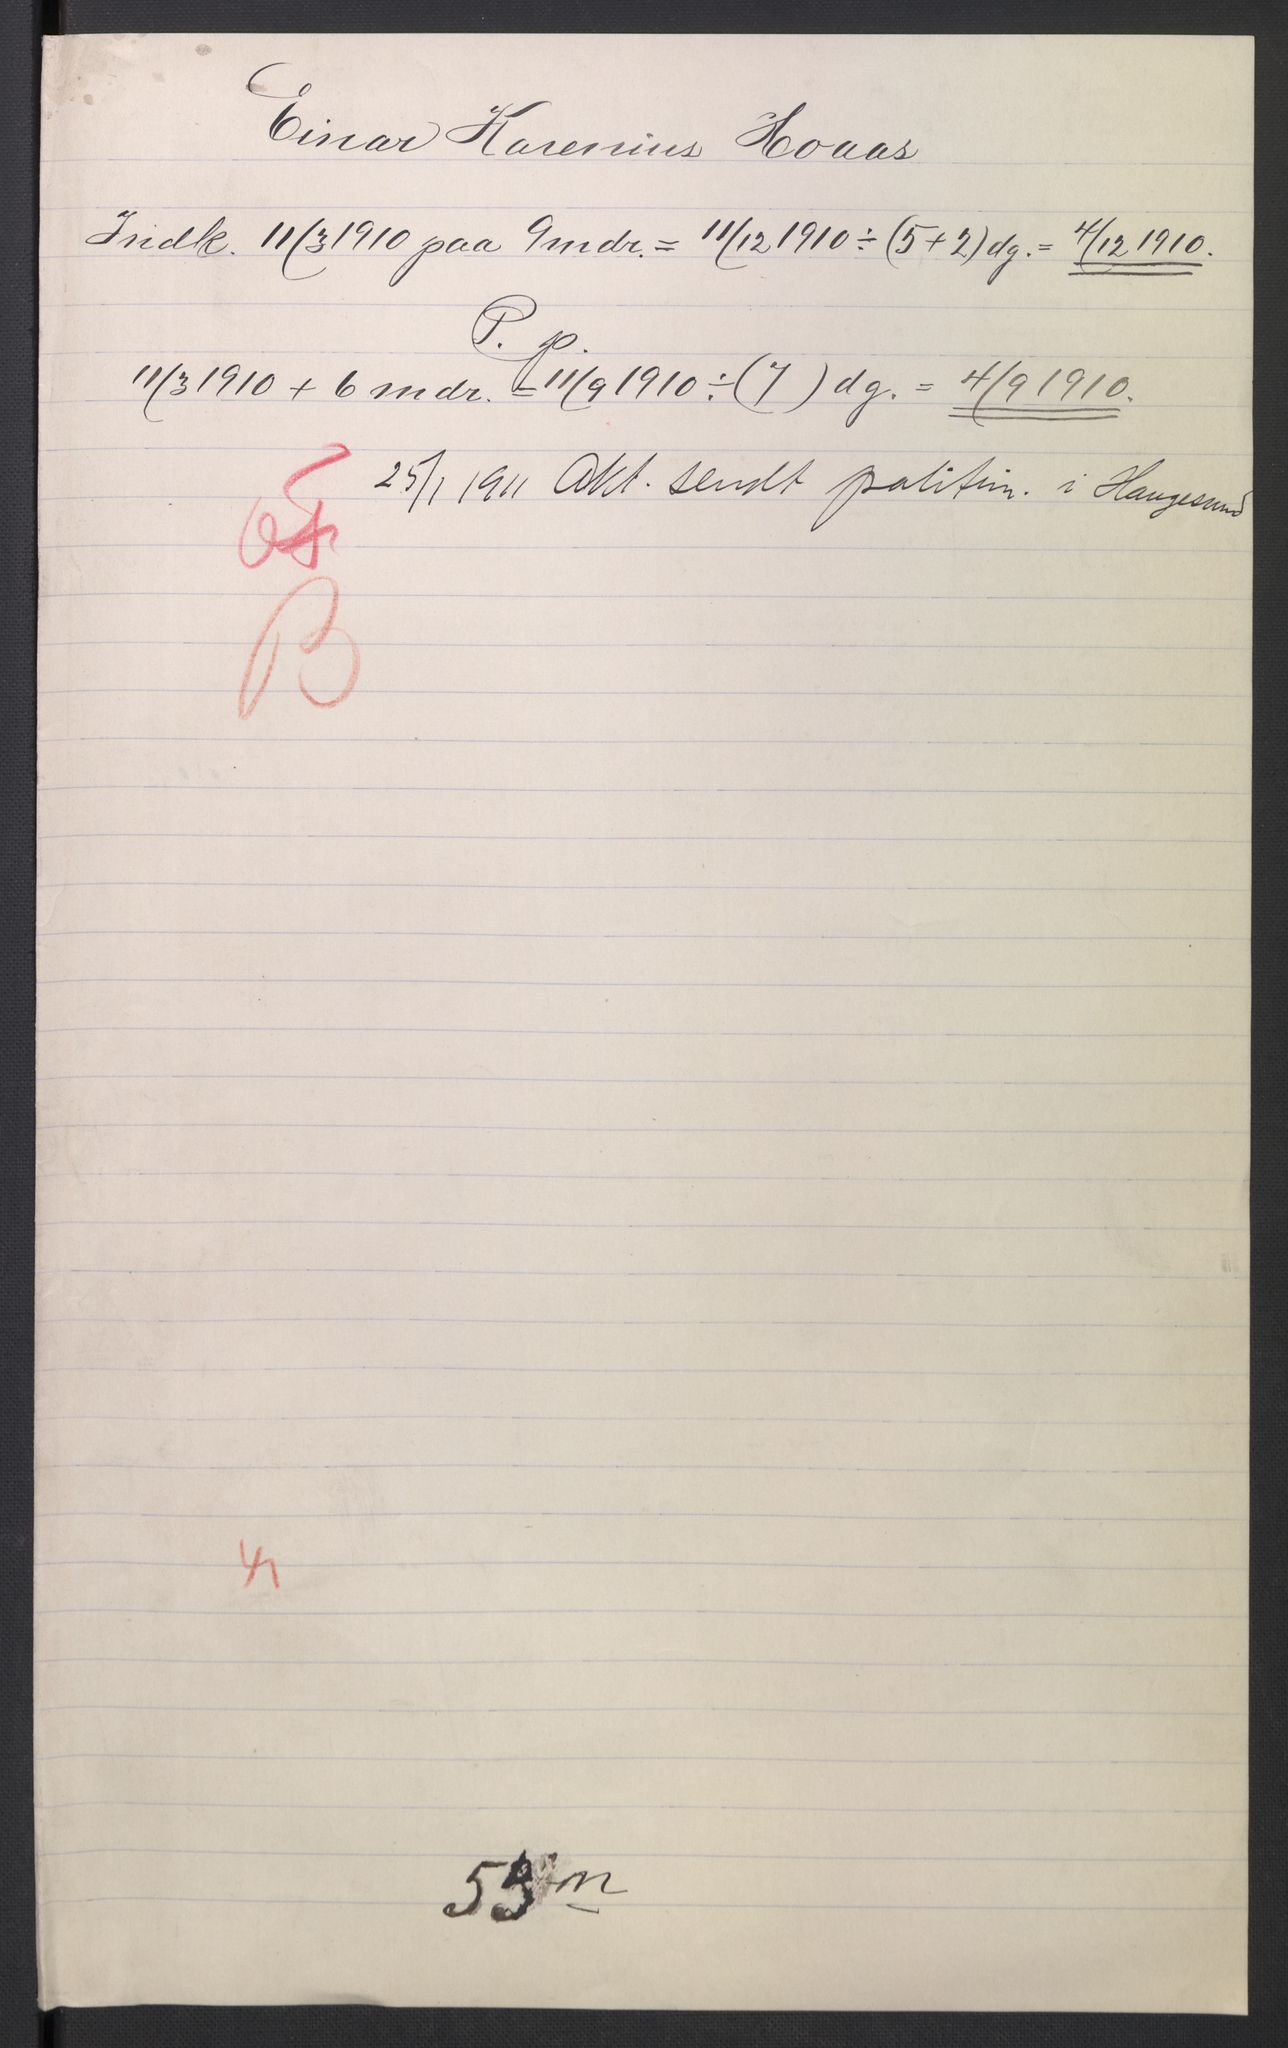 Einar Karenius Hovaas
Indk. 11/3 1910 paa 9 mdr. = 11/12 1910 ÷ (5 + 2) dg. = 4/12 1910.
P. p.
11/3 1910 + 6 mdr. = 11/9 1910 ÷ (7 ) dg. = 4/9 1910.
25/1 1911 Akt. sendt politim. i Haugesund
B
53 m